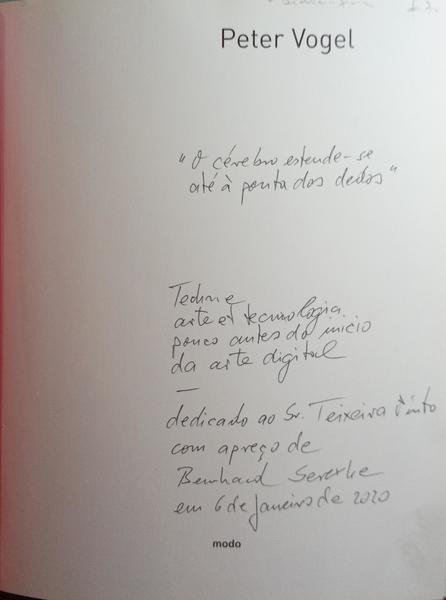 Peter Vogel
"O cérebro estende-se
até à ponta dos dedos"
Techne
arte et tecnologia
pouco antes do inicio
da arte digital
—
dedicado ao Sr. Teixeira Pinto
com apreço de
Bernhard Serexhe
em 6 de Janeiro de 2020
modo